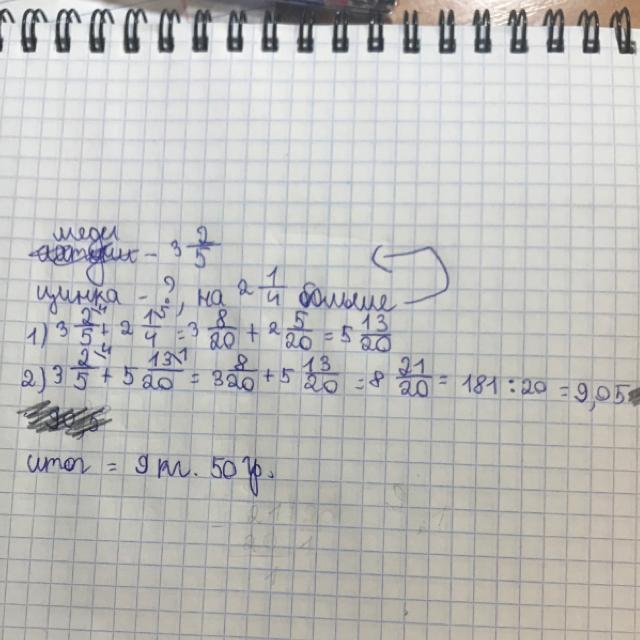 меди - 3 2/5
цинка - ?, на 2 1/4 больше
1) 3 2/5 + 2 1/4 = 3 8/20 + 2 5/20 = 5 13/20
2) 3 2/5 + 5 13/20 = 3 8/20 + 5 13/20 = 8 21/20 = 181 : 20 = 9,05
итог = 9 кг. 50 гр.